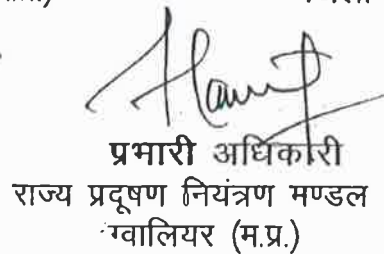 प्रभारी अधिकारी
राज्य प्रदूषण नियंत्रण मण्डल
ग्वालियर (म.प्र.)